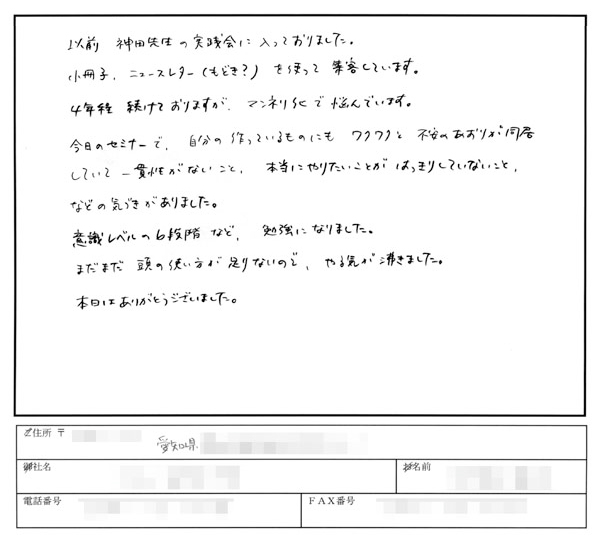 以前 神田先生の実践会に入っておりました。
小冊子、ニュースレター(もどき?)を使って集客しています。
4年程 続けておりますが、マンネリ化で悩んでいます。
今日のセミナーで、自分の作っているものにも ワクワクと 不安のあおりが同居
していて 一貫性がないこと、本当にやりたいことが はっきりしていないこと、
などの気づきがありました。
意識レベルの6段階など、勉強になりました。
まだまだ 頭の使い方が足りないので、やる気が沸きました。
本日はありがとうございました。
ご住所 〒
愛知県
御社名 お名前
電話番号 FAX番号